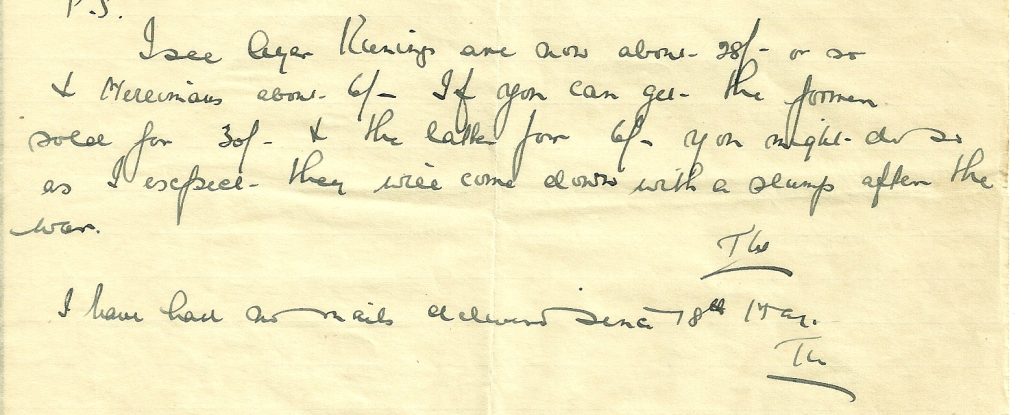 P.S.
I see Ayer Kunings are now about 28/- or so
& Merlimaus about 6/- If you can get the former
sold for 30/- & the latter for 6/- you might do so
as I expect they will come down with a slump after the
war.
I have had no mails delivered since 18th May.